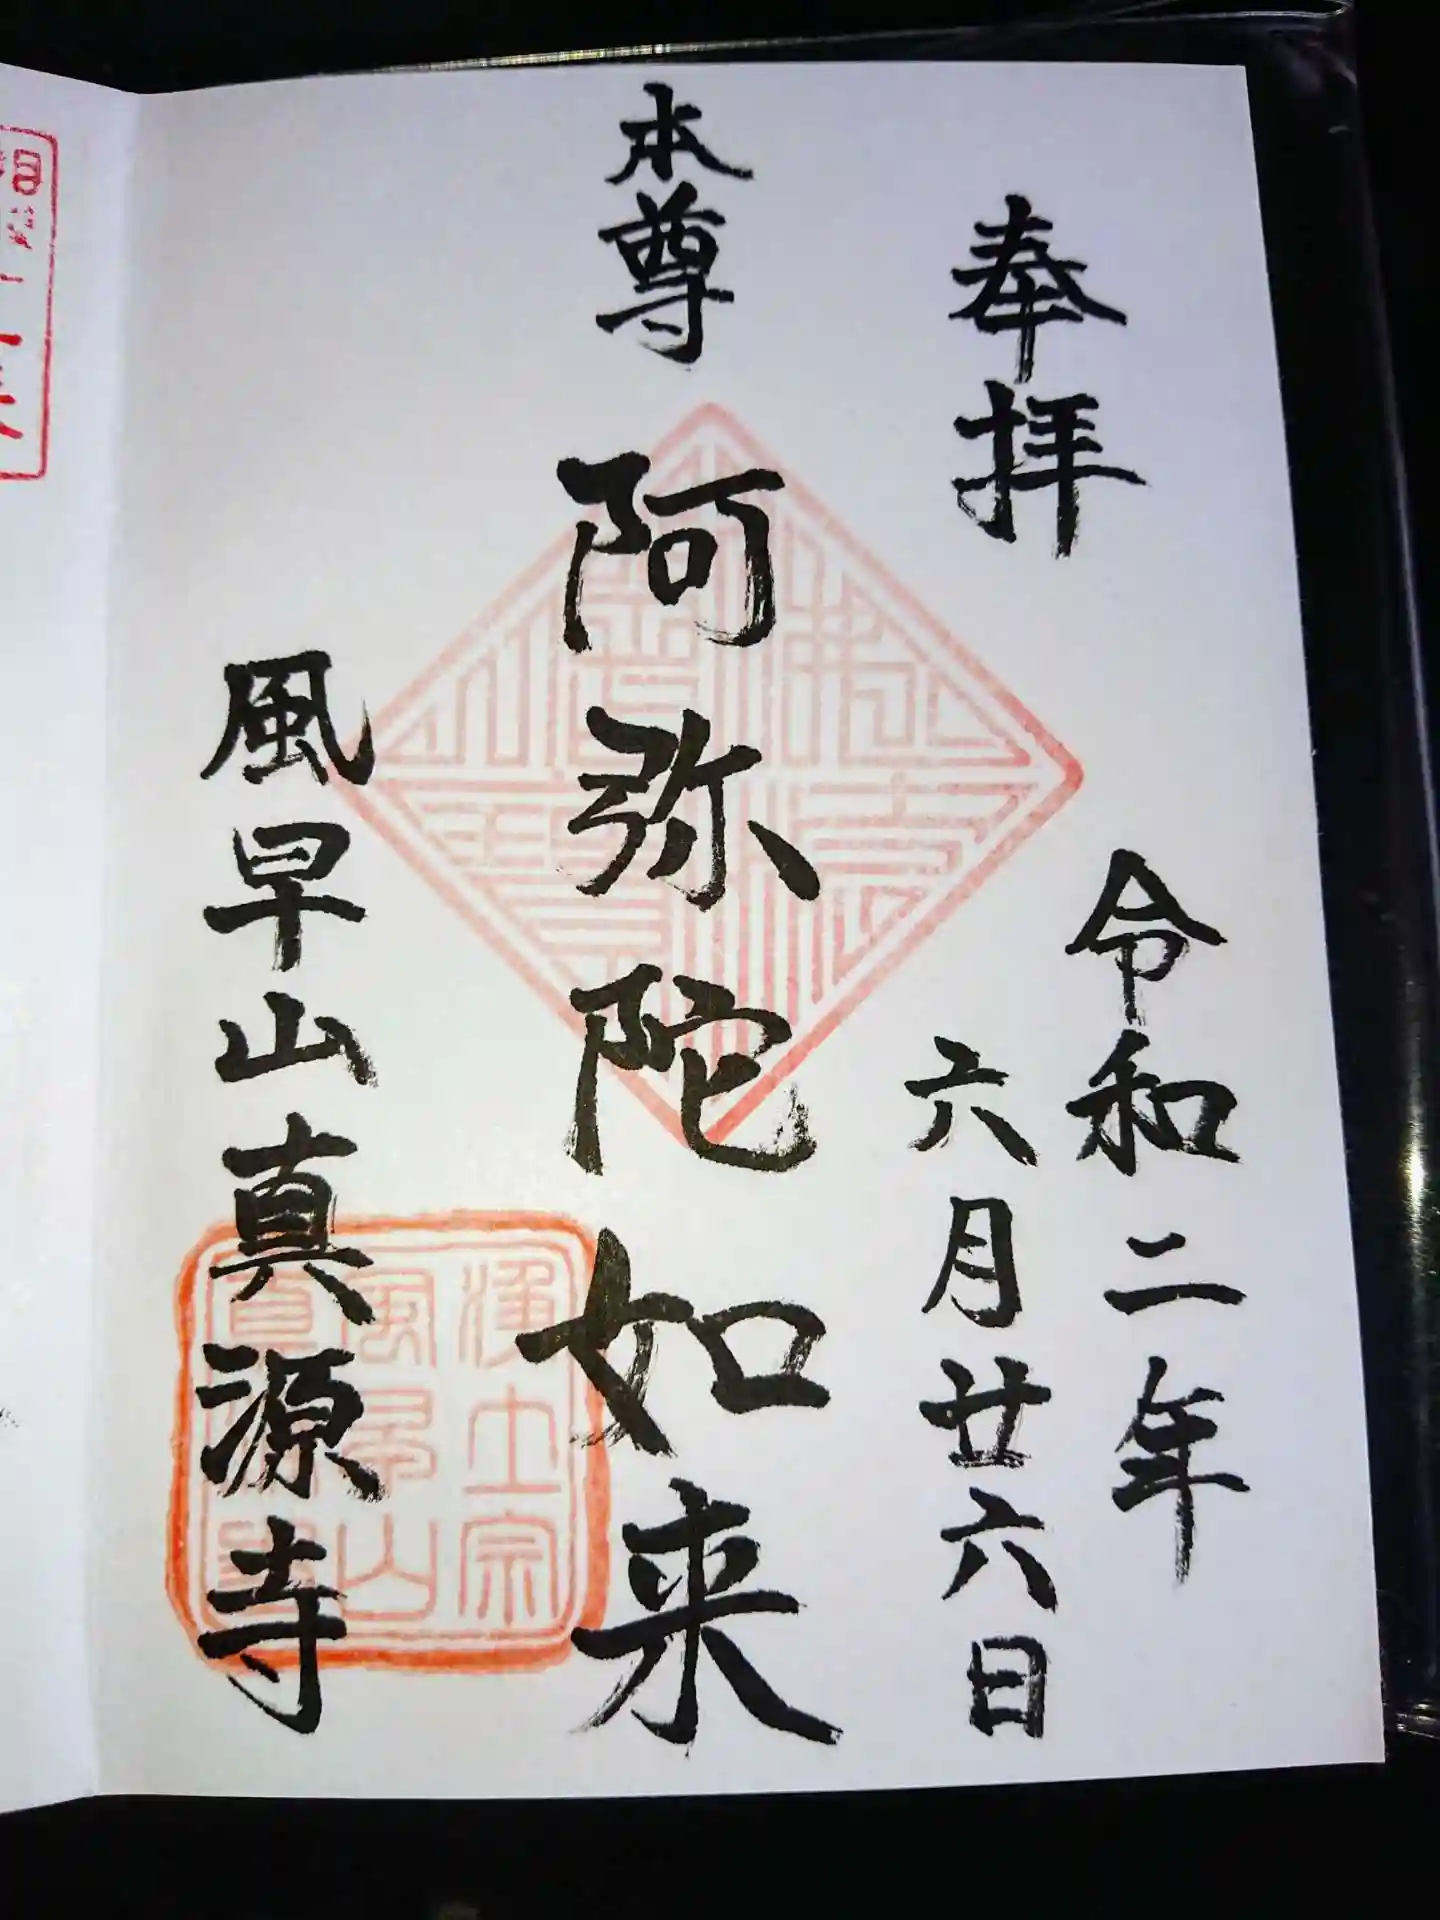 奉拝
令和二年
六月廿六日
本尊 阿弥陀如来
風早山真源寺
佛法僧寶
浄土宗
風早山
真源寺